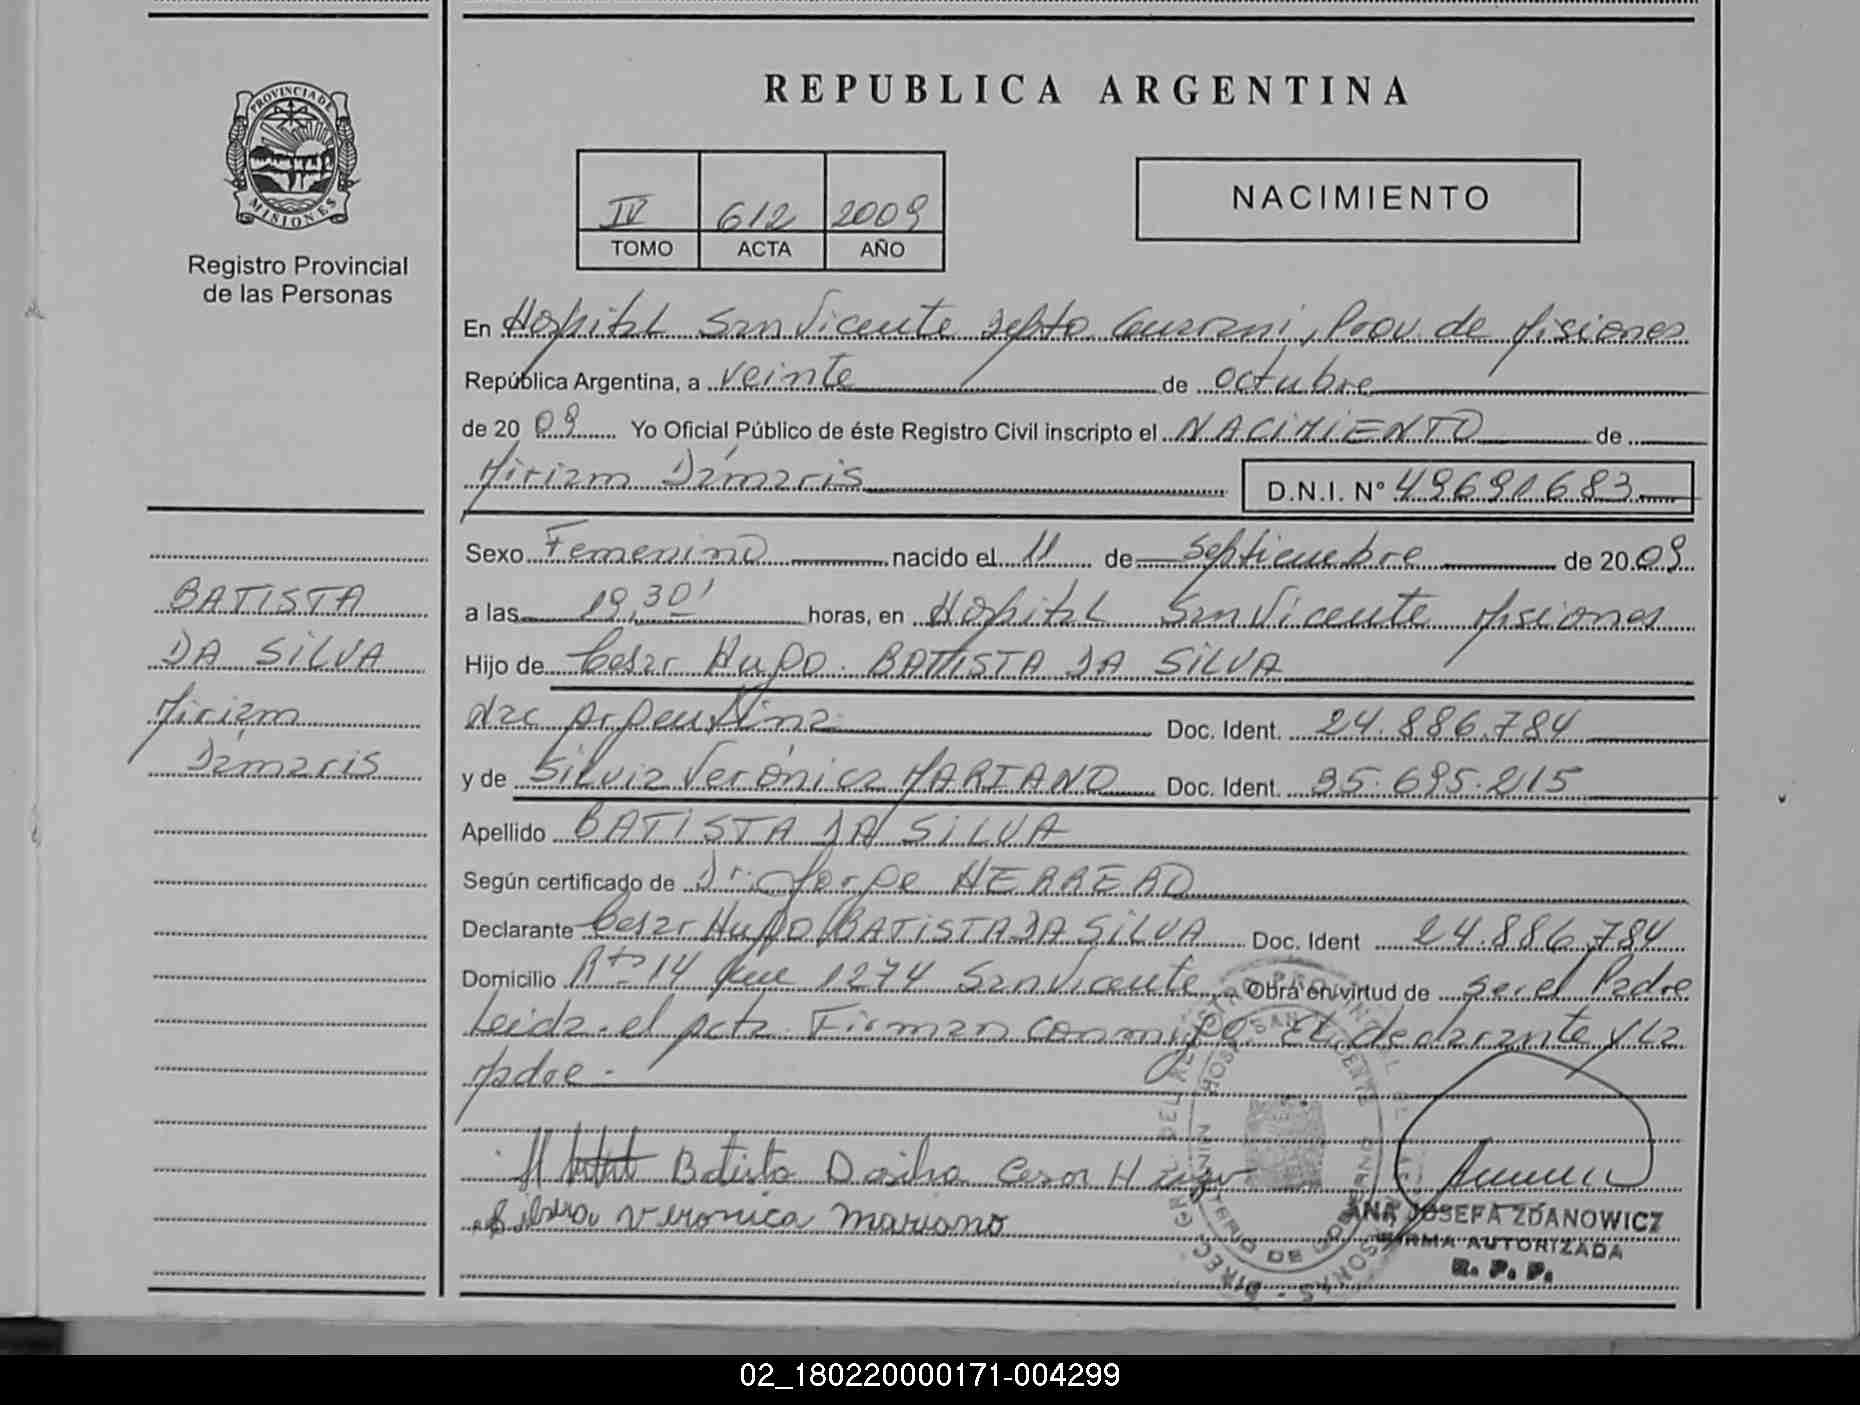 REPUBLICA ARGENTINA
PROVINCIA DE
MISIONES
Registro Provincial
de las Personas
IV 612 2009
TOMO ACTA AÑO
NACIMIENTO
En Hospital San Vicente Depto Guarani, Prov. de Misiones
República Argentina, a veinte de octubre
de 2009 Yo Oficial Público de éste Registro Civil inscripto el NACIMIENTO de
Miriam Dámaris D.N.I. Nº 49691683
Sexo Femenino nacido el 11 de Septiembre de 2009
a las 19,30' horas, en Hospital San Vicente Misiones
Hijo de Cesar Hugo BATISTA DA SILVA
Nac Argentina Doc. Ident. 24.886.784
y de Silvia Verónica MARIANO Doc. Ident. 35.695.215
Apellido BATISTA DA SILVA
Según certificado de Dr. Jorge HERRERO
Declarante Cesar Hugo BATISTA DA SILVA Doc. Ident 24.886.784
Domicilio Rta 14 km 1274 San Vicente Obra en virtud de ser el Padre
Leida el acta Firman conmigo El declarante y la
Madre -
Batista Dasilva Cesar Hugo
Silvia Veronica Mariano
ANA JOSEFA ZDANOWICZ
FIRMA AUTORIZADA
R. P. P.
BATISTA
DA SILVA
Miriam
Dámaris
02_180220000171-004299